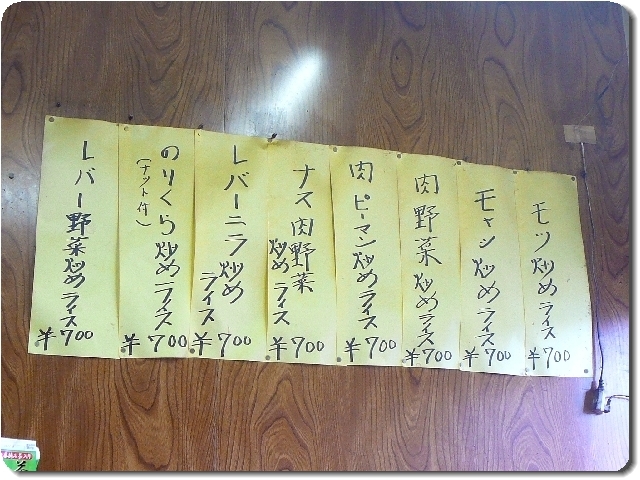 モツ炒めライス
¥700
モヤシ炒めライス
¥700
肉野菜炒めライス
¥700
肉ピーマン炒めライス
¥700
ナス肉野菜
炒めライス
¥700
レバーニラ炒め
ライス
¥700
のりくら炒めライス
(ナット付)
¥700
レバー野菜炒めライス
¥700